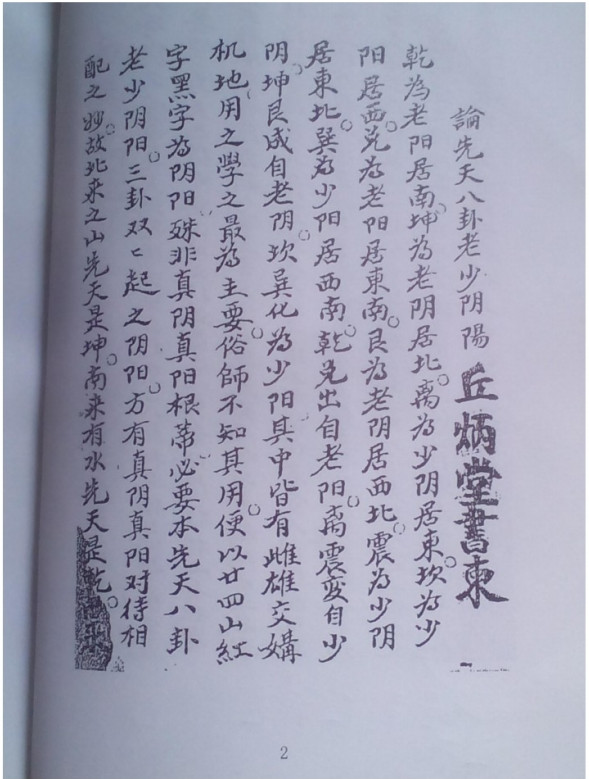 論先天八卦老少阴陽 丘炳堂書柬
乾為老阳居南坤為老阴居北离為少阴居東坎為少
阳居西兑為老阳居東南艮為老阴居西北震為少阴
居東北巽為少阳居西南乾兑出自老阳离震变自少
阴坤艮成自老阴坎巽化為少阳其中皆有雌雄交媾
机地用之學之最為主要俗師不知其用便以廿四山红
字黑字為阴阳殊非真阴真阳根蒂必要本先天八卦
老少阴阳三卦双〻起之阴阳方有真阴真阳对待相
配之妙故北来之山先天是坤南来有水先天是乾
2